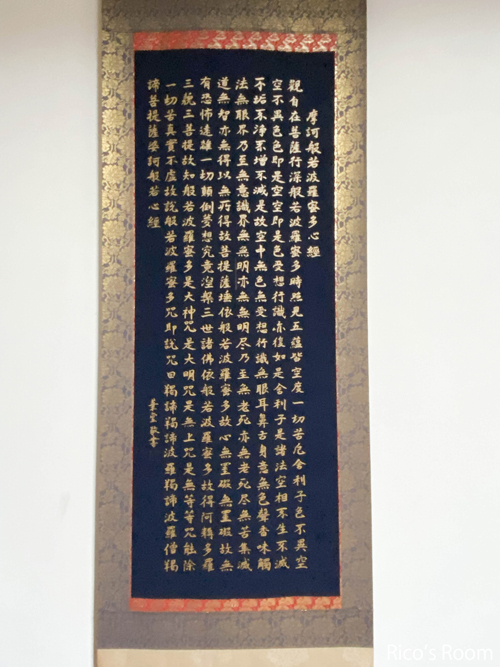 摩訶般若波羅蜜多心經
觀自在菩薩行深般若波羅蜜多時照見五蘊皆空度一切苦厄舍利子色不異空
空不異色色即是空空即是色受想行識亦復如是舍利子是諸法空相不生不滅
不垢不淨不增不減是故空中無色無受想行識無眼耳鼻舌身意無色聲香味觸
法無眼界乃至無意識界無無明亦無無明盡乃至無老死亦無老死盡無苦集滅
道無智亦無得以無所得故菩提薩埵依般若波羅蜜多故心無罣礙無罣礙故無
有恐怖遠離一切顛倒夢想究竟涅槃三世諸佛依般若波羅蜜多故得阿耨多羅
三藐三菩提故知般若波羅蜜多是大神咒是大明咒是無上咒是無等等咒能除
一切苦真實不虛故說般若波羅蜜多咒即說咒曰羯諦羯諦波羅羯諦波羅僧羯
諦菩提薩婆訶般若心經
敬書
Rico's Room